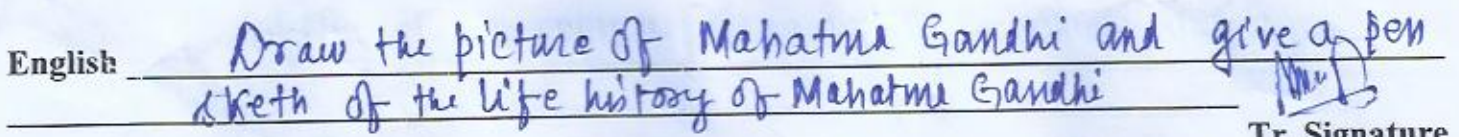 English Draw the picture of Mahatma Gandhi and give a pen
sketh of the life history of Mahatma Gandhi
Tr. Signature